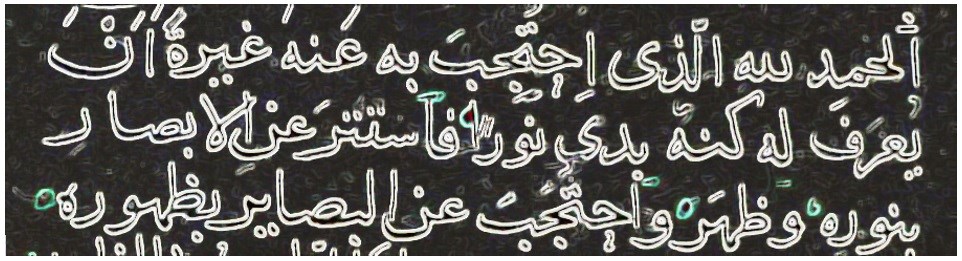 ألحمد لله الّذى اِحتجبَ به عَنه غيرةً اَنْ
يُعرَفَ له كنهٌ بدى نوّرا فآستترَ عن الابصار
بنوره وظهَرَ وأحتجُبَ عن البصاير بظهوره